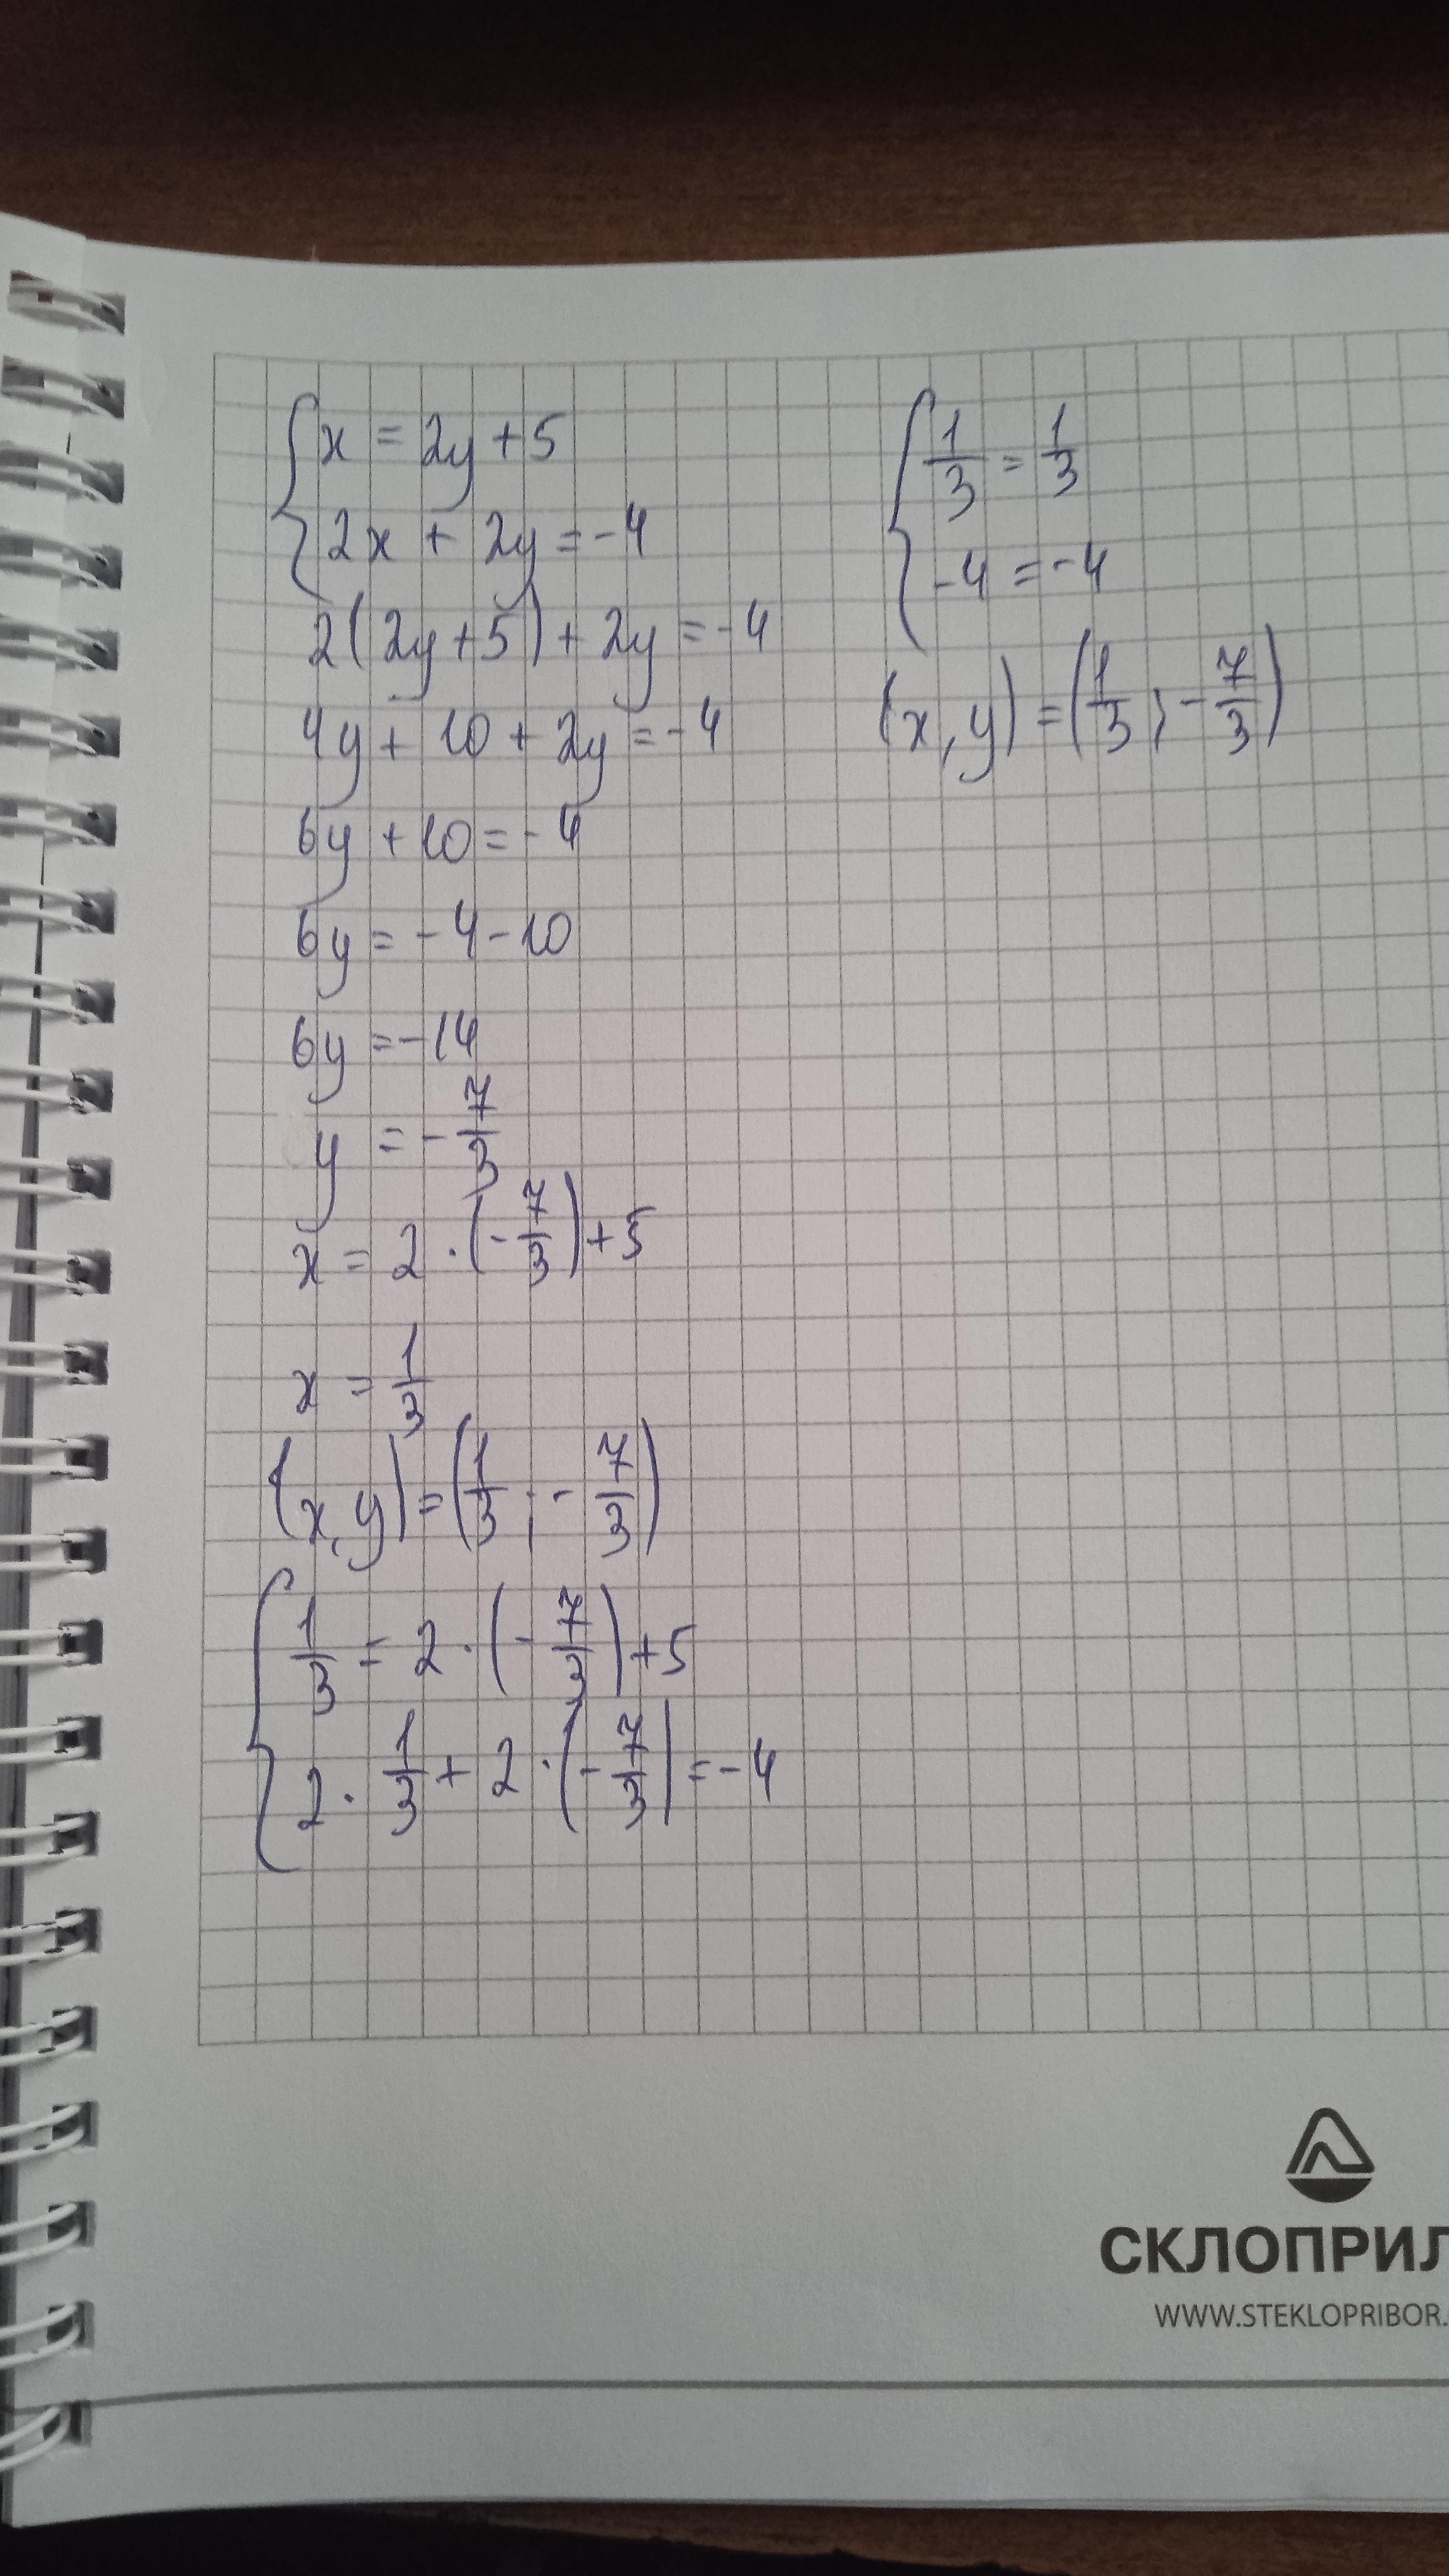 { x = 2y + 5
2x + 2y = -4
2(2y + 5) + 2y = -4
4y + 10 + 2y = -4
6y + 10 = -4
6y = -4 - 10
6y = -14
y = - 7/3
x = 2 · (- 7/3) + 5
x = 1/3
(x, y) = (1/3 ; - 7/3)
{ 1/3 = 2 · (- 7/3) + 5
2 · 1/3 + 2 · (- 7/3) = -4
{ 1/3 = 1/3
-4 = -4
(x, y) = (1/3 ; - 7/3)
СКЛОПРИЛ
WWW.STEKLOPRIBOR.